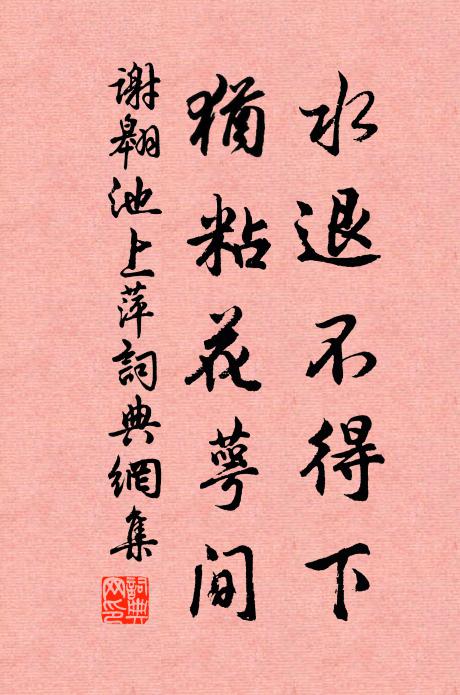 水退不得下
猶粘花萼間
謝翱池上萍詞典網集
詞典网印